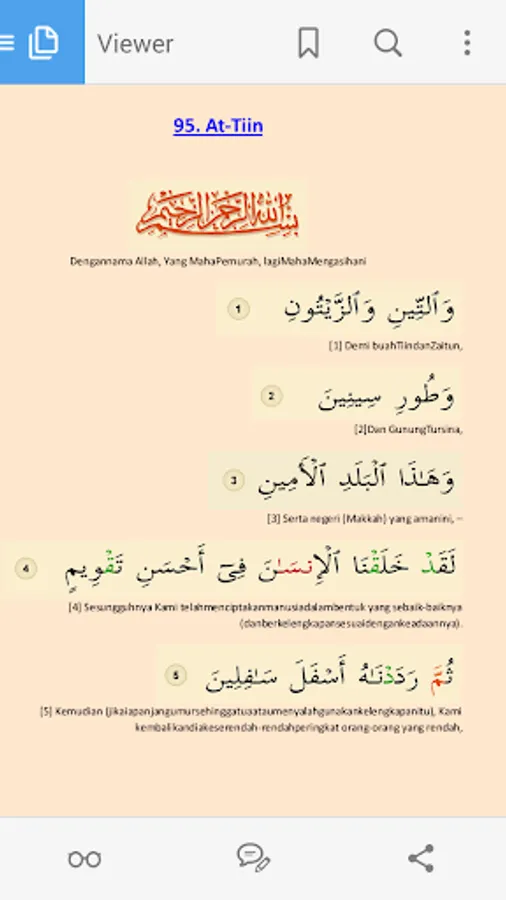 Viewer
95. At-Tiin
بسم الله الرحمن الرحيم
Dengannama Allah, Yang MahaPemurah, lagiMahaMengasihani
وَٱلتِّينِ وَٱلزَّيْتُونِ 1
[1] Demi buahTiindanZaitun,
وَطُورِ سِينِينَ 2
[2]Dan GunungTursina,
وَهَـٰذَا ٱلْبَلَدِ ٱلْأَمِينِ 3
[3] Serta negeri (Makkah) yang amanini, –
لَقَدْ خَلَقْنَا ٱلْإِنسَـٰنَ فِىٓ أَحْسَنِ تَقْوِيمٍ 4
[4] Sesungguhnya Kami telahmenciptakanmanusiadalambentuk yang sebaik-baiknya
(danberkelengkapansesuaidengankeadaannya).
ثُمَّ رَدَدْنَـٰهُ أَسْفَلَ سَـٰفِلِينَ 5
[5] Kemudian (jikaiapanjangumursehinggatuaataumenyalahgunakankelengkapanitu), Kami
kembalikandiakeserendah-rendahperingkat orang-orang yang rendah,